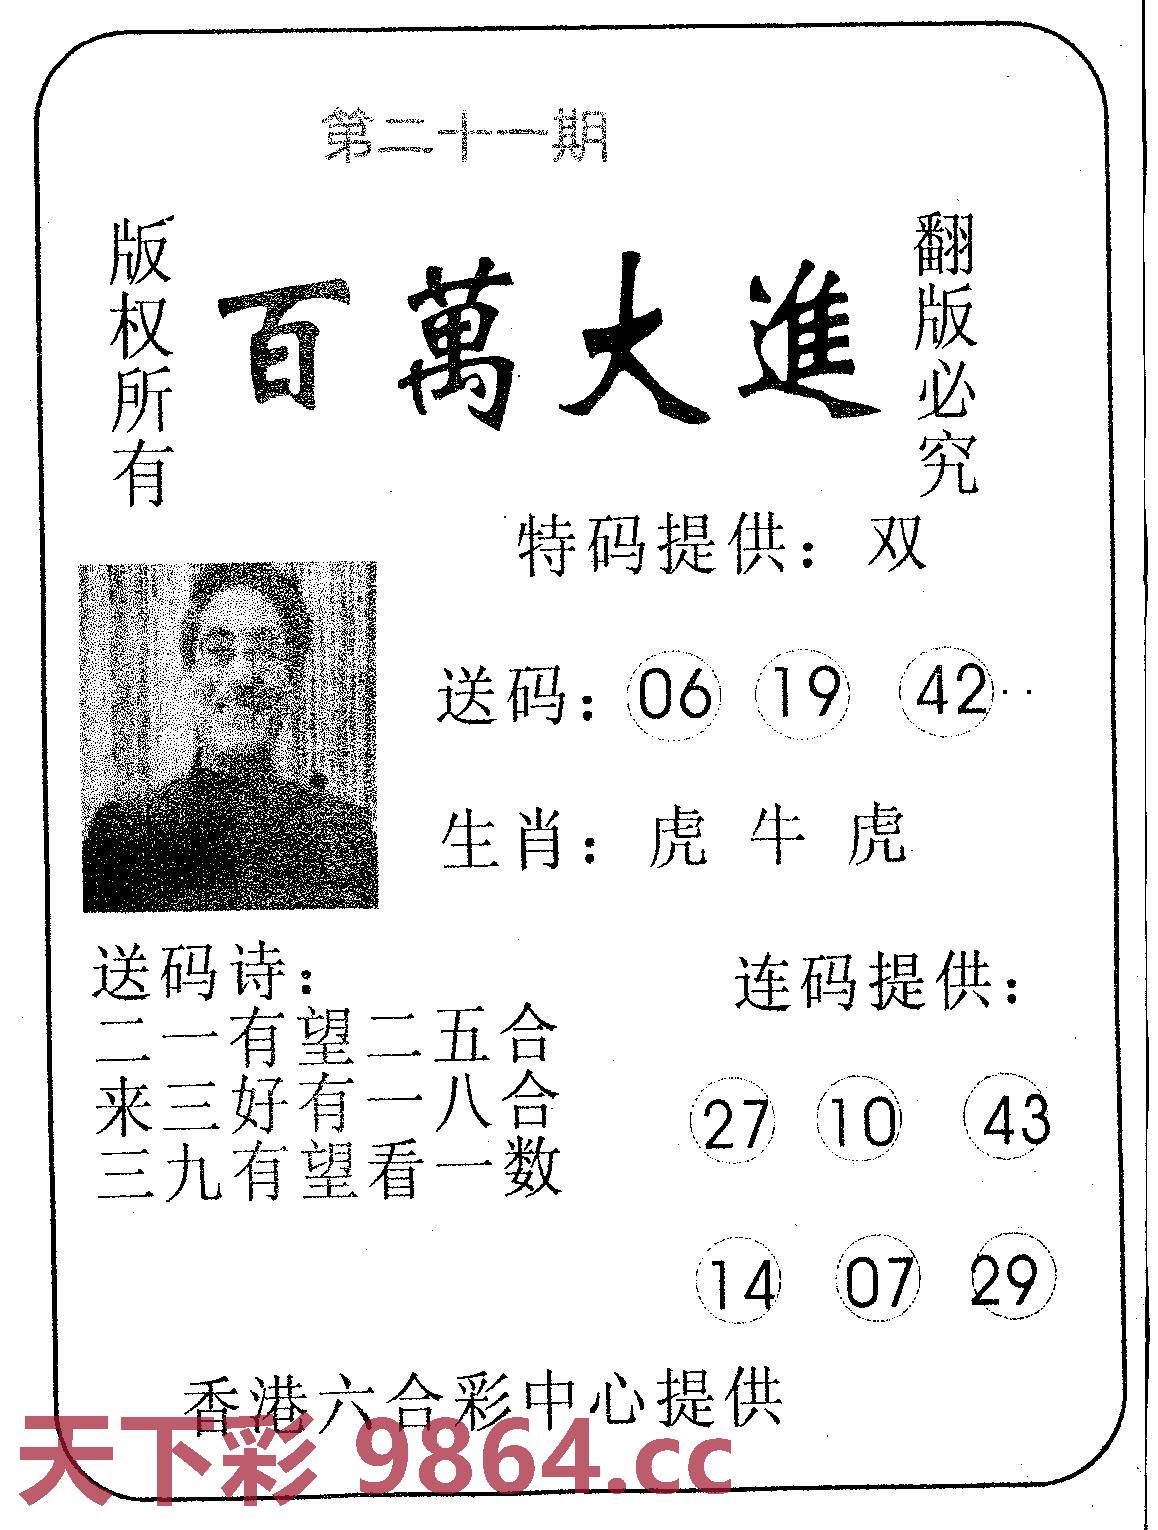 第二十一期
版权所有
百萬大進
翻版必究
特码提供：双
送码：06 19 42··
生肖：虎 牛 虎
送码诗：
二一有望二五合
来三好有一八合
三九有望看一数
连码提供：
27 10 43
14 07 29
香港六合彩中心提供
天下彩 9864.cc